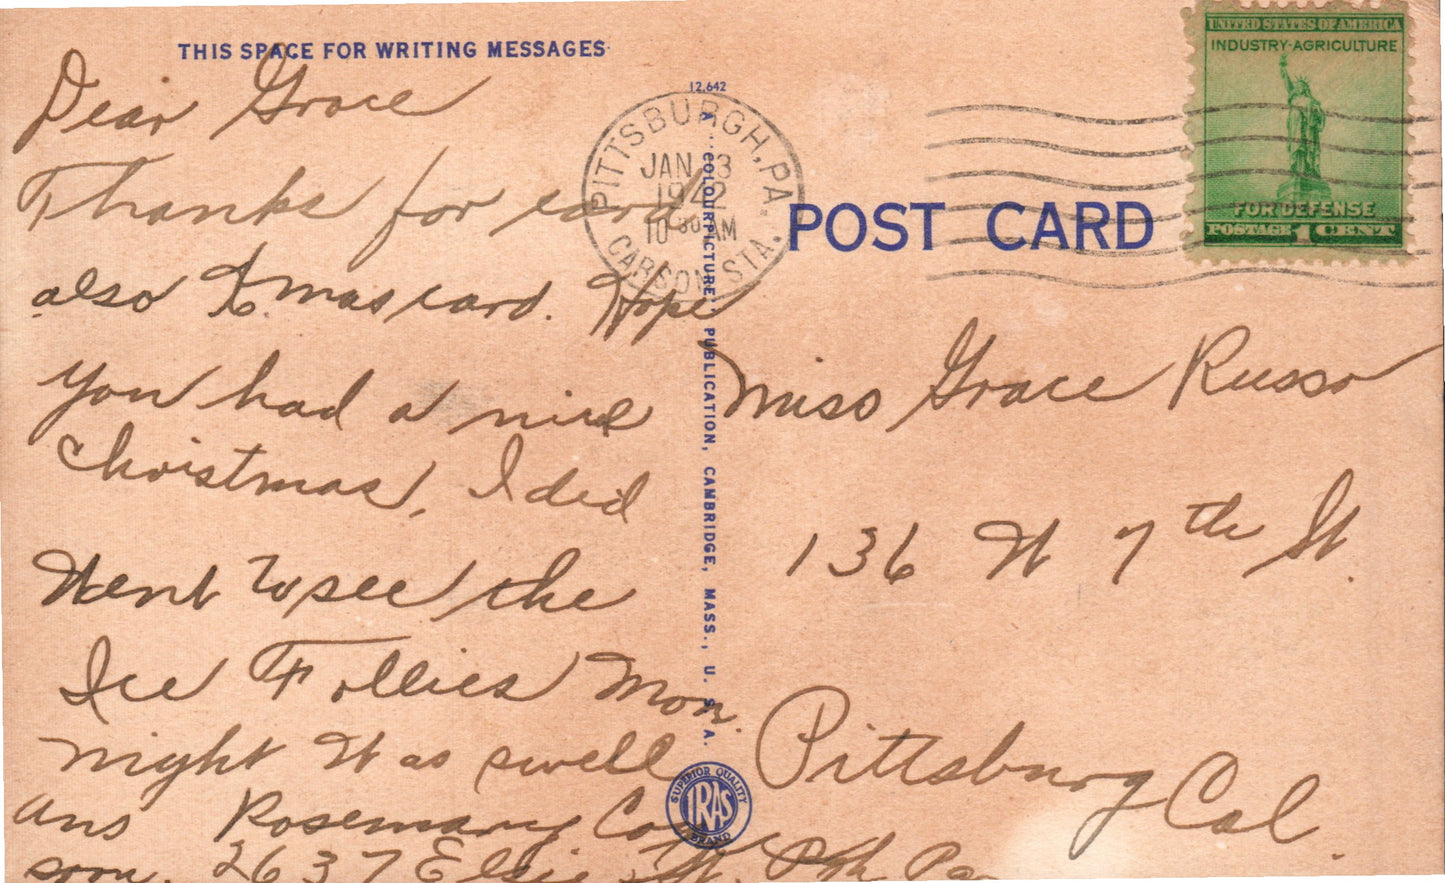 THIS SPACE FOR WRITING MESSAGES
Dear Grace
Thanks for card
also Xmas card. Hope
you had a nice
Christmas, I did
Went to see the
Ice Follies Mon.
night It was swell
Ans Rosemary
soon. 2637 Elsie St. Pgh Pa
12,642
A "COLOURPICTURE" PUBLICATION, CAMBRIDGE, MASS., U. S. A.
SUPERIOR QUALITY
IRAS
BRAND
PITTSBURGH, PA.
JAN 3
1942
10 30 AM
CARSON STA.
UNITED STATES OF AMERICA
INDUSTRY-AGRICULTURE
FOR DEFENSE
POSTAGE 1 CENT
POST CARD
Miss Grace Russo
136 W 7th St.
Pittsburg Cal.